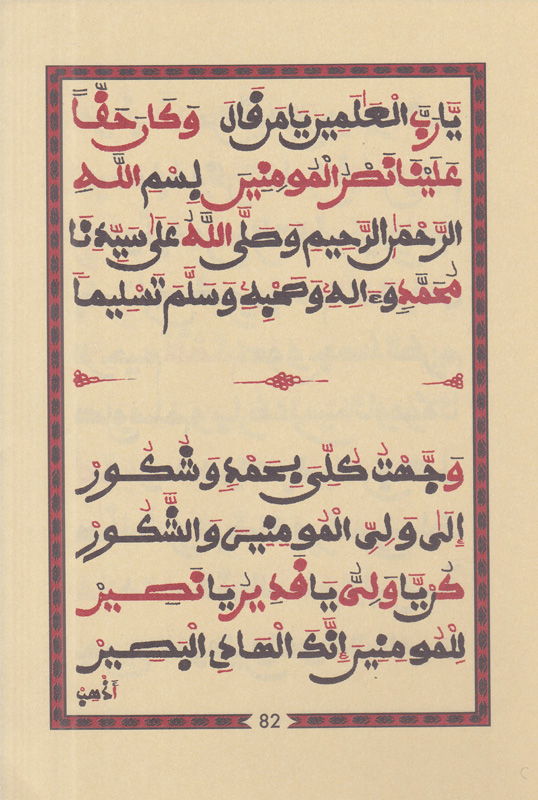 يَارَبَّ الْعَلَمِينَ يَامَن قَالَ وَكَانَ حَقًّا
عَلَيْنَا نَصْرُ الْمُومِنِينَ بِسْمِ اللَّهِ
الرَّحْمَنِ الرَّحِيمِ وَصَلَّى اللَّهُ عَلَى سَيِّدِنَا
مُحَمَّدٍ وَءَالِهِ وَصَحْبِهِ وَسَلَّمَ تَسْلِيمًا
وَجَّهْتُ كُلِّي بِحَمْدٍ وَشُكُورْ
إِلَى وَلِيِّ الْمُومِنِينَ وَالشَّكُورْ
كُن يَّا وَلِيُّ يَا قَدِيرُ يَا نَصِيرْ
لِلْمُومِنِينَ إِنَّكَ الْهَادِي الْبَصِيرْ
أَذْهِبْ
82